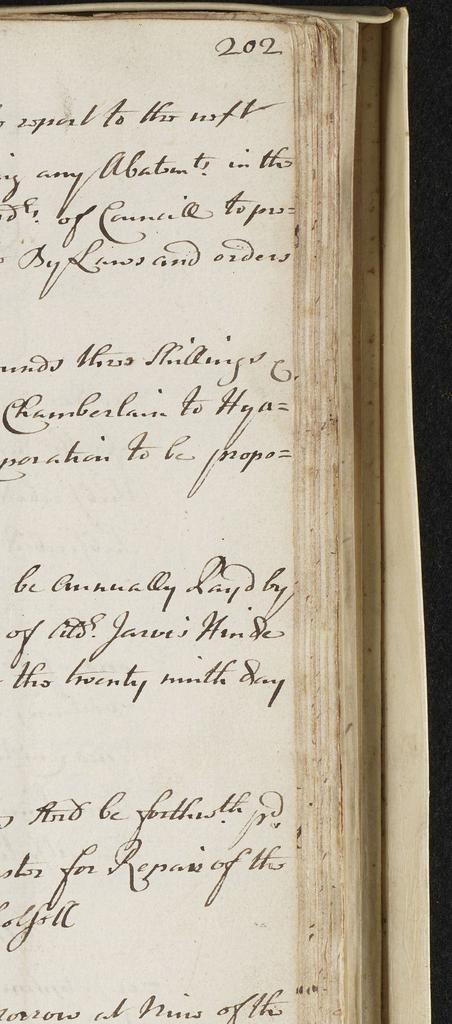 202
report to the next
any Abatemts. in the
of Councill to pro=
By Laws and orders
three Shillings &
Chamberlain to Hya=
to be propo=
be annually Payd by
of Ald. Jarvis Hinde
the twenty ninth day
And be forthwth. pd.
for Repair of the
at Nine of the